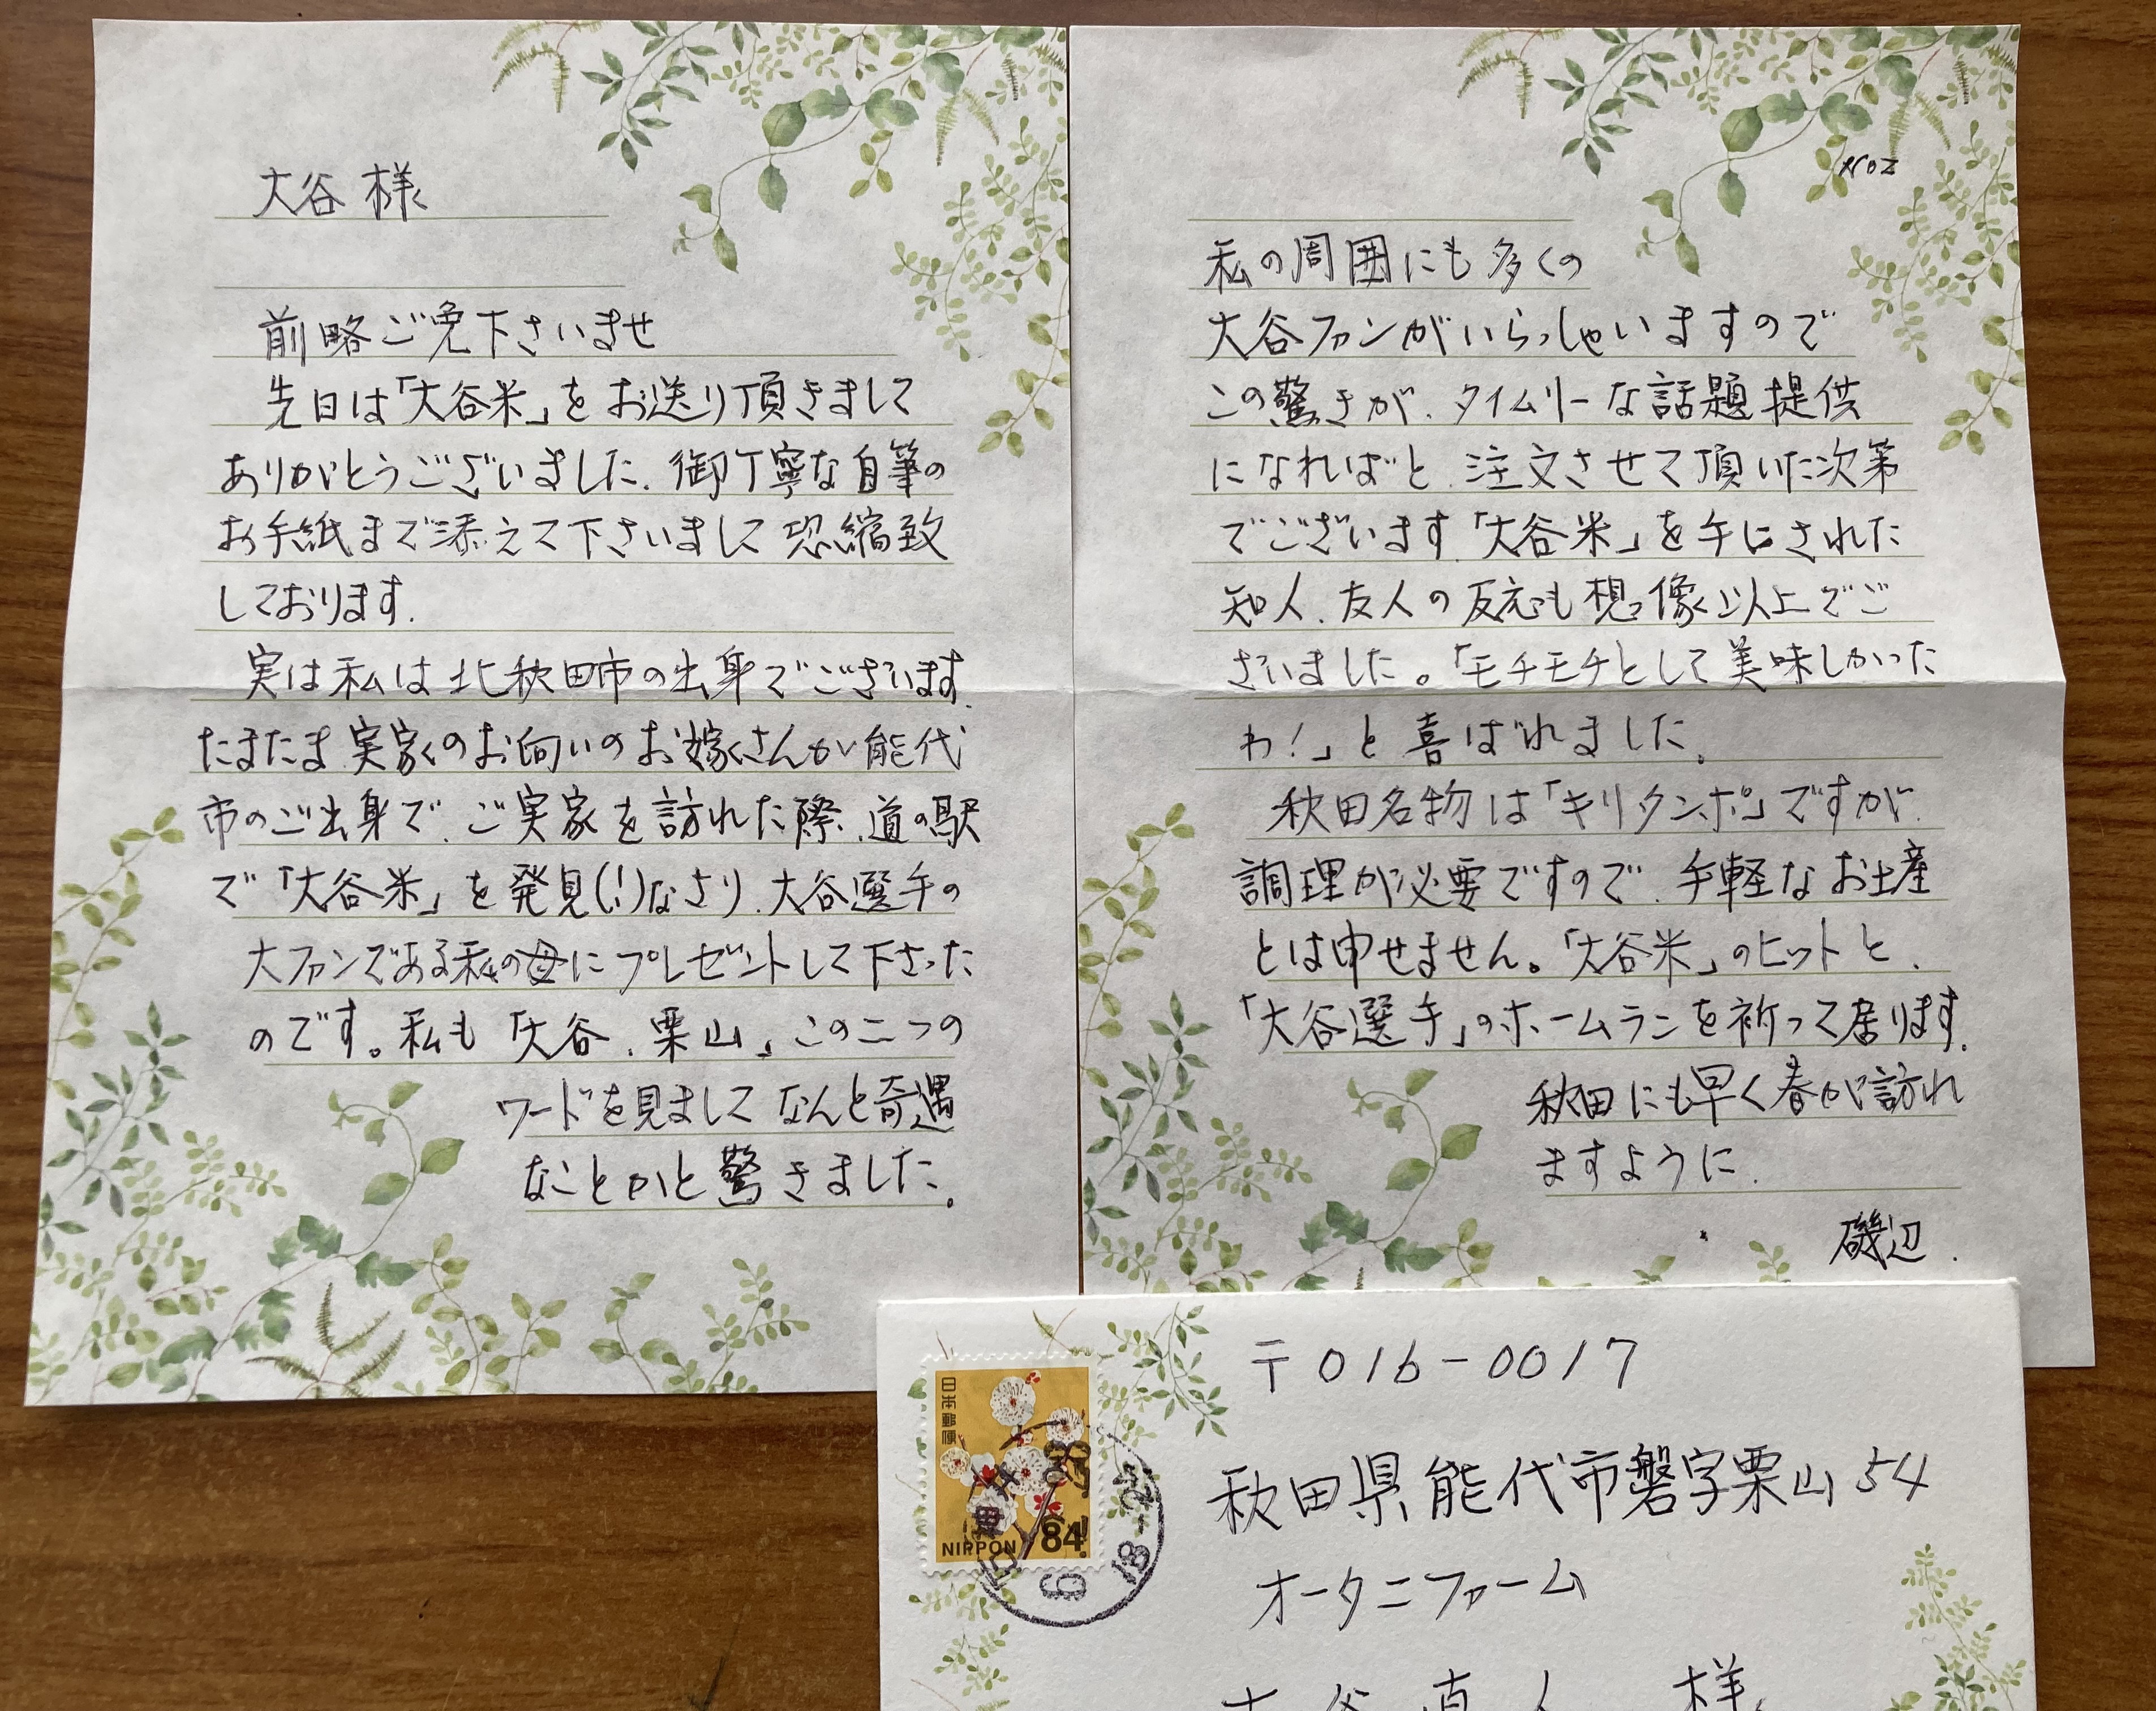 大谷 様
前略ご免下さいませ
先日は「大谷米」をお送り頂きまして
ありがとうございました. 御丁寧な自筆の
お手紙まで添えて下さいまして 恐縮致
しております.
実は私は北秋田市の出身でございます.
たまたま実家のお向いのお嫁さんが能代
市のご出身で、ご実家を訪れた際、道の駅
で「大谷米」を発見(!)なさり、大谷選手の
大ファンである私の母にプレゼントして下さった
のです。私も「大谷、栗山」この二つの
ワードを見まして なんと奇遇
なことかと驚きました。
No2
私の周囲にも多くの
大谷ファンがいらっしゃいますので
この驚きが、タイムリーな話題提供
になればと、注文させて頂いた次第
でございます.「大谷米」を手にされた
知人、友人の反応も想像以上でご
ざいました。「モチモチとして美味しかった
わ!」と喜ばれました。
秋田名物は「キリタンポ」ですが、
調理が必要ですので、手軽なお土産
とは申せません。「大谷米」のヒットと、
「大谷選手」のホームランを祈って居ります.
秋田にも早く春が訪れ
ますように.
磯辺.
〒016-0017
日本郵便
NIPPON 84
6
18
秋田県能代市磐字栗山54
オータニファーム
大谷直人 様